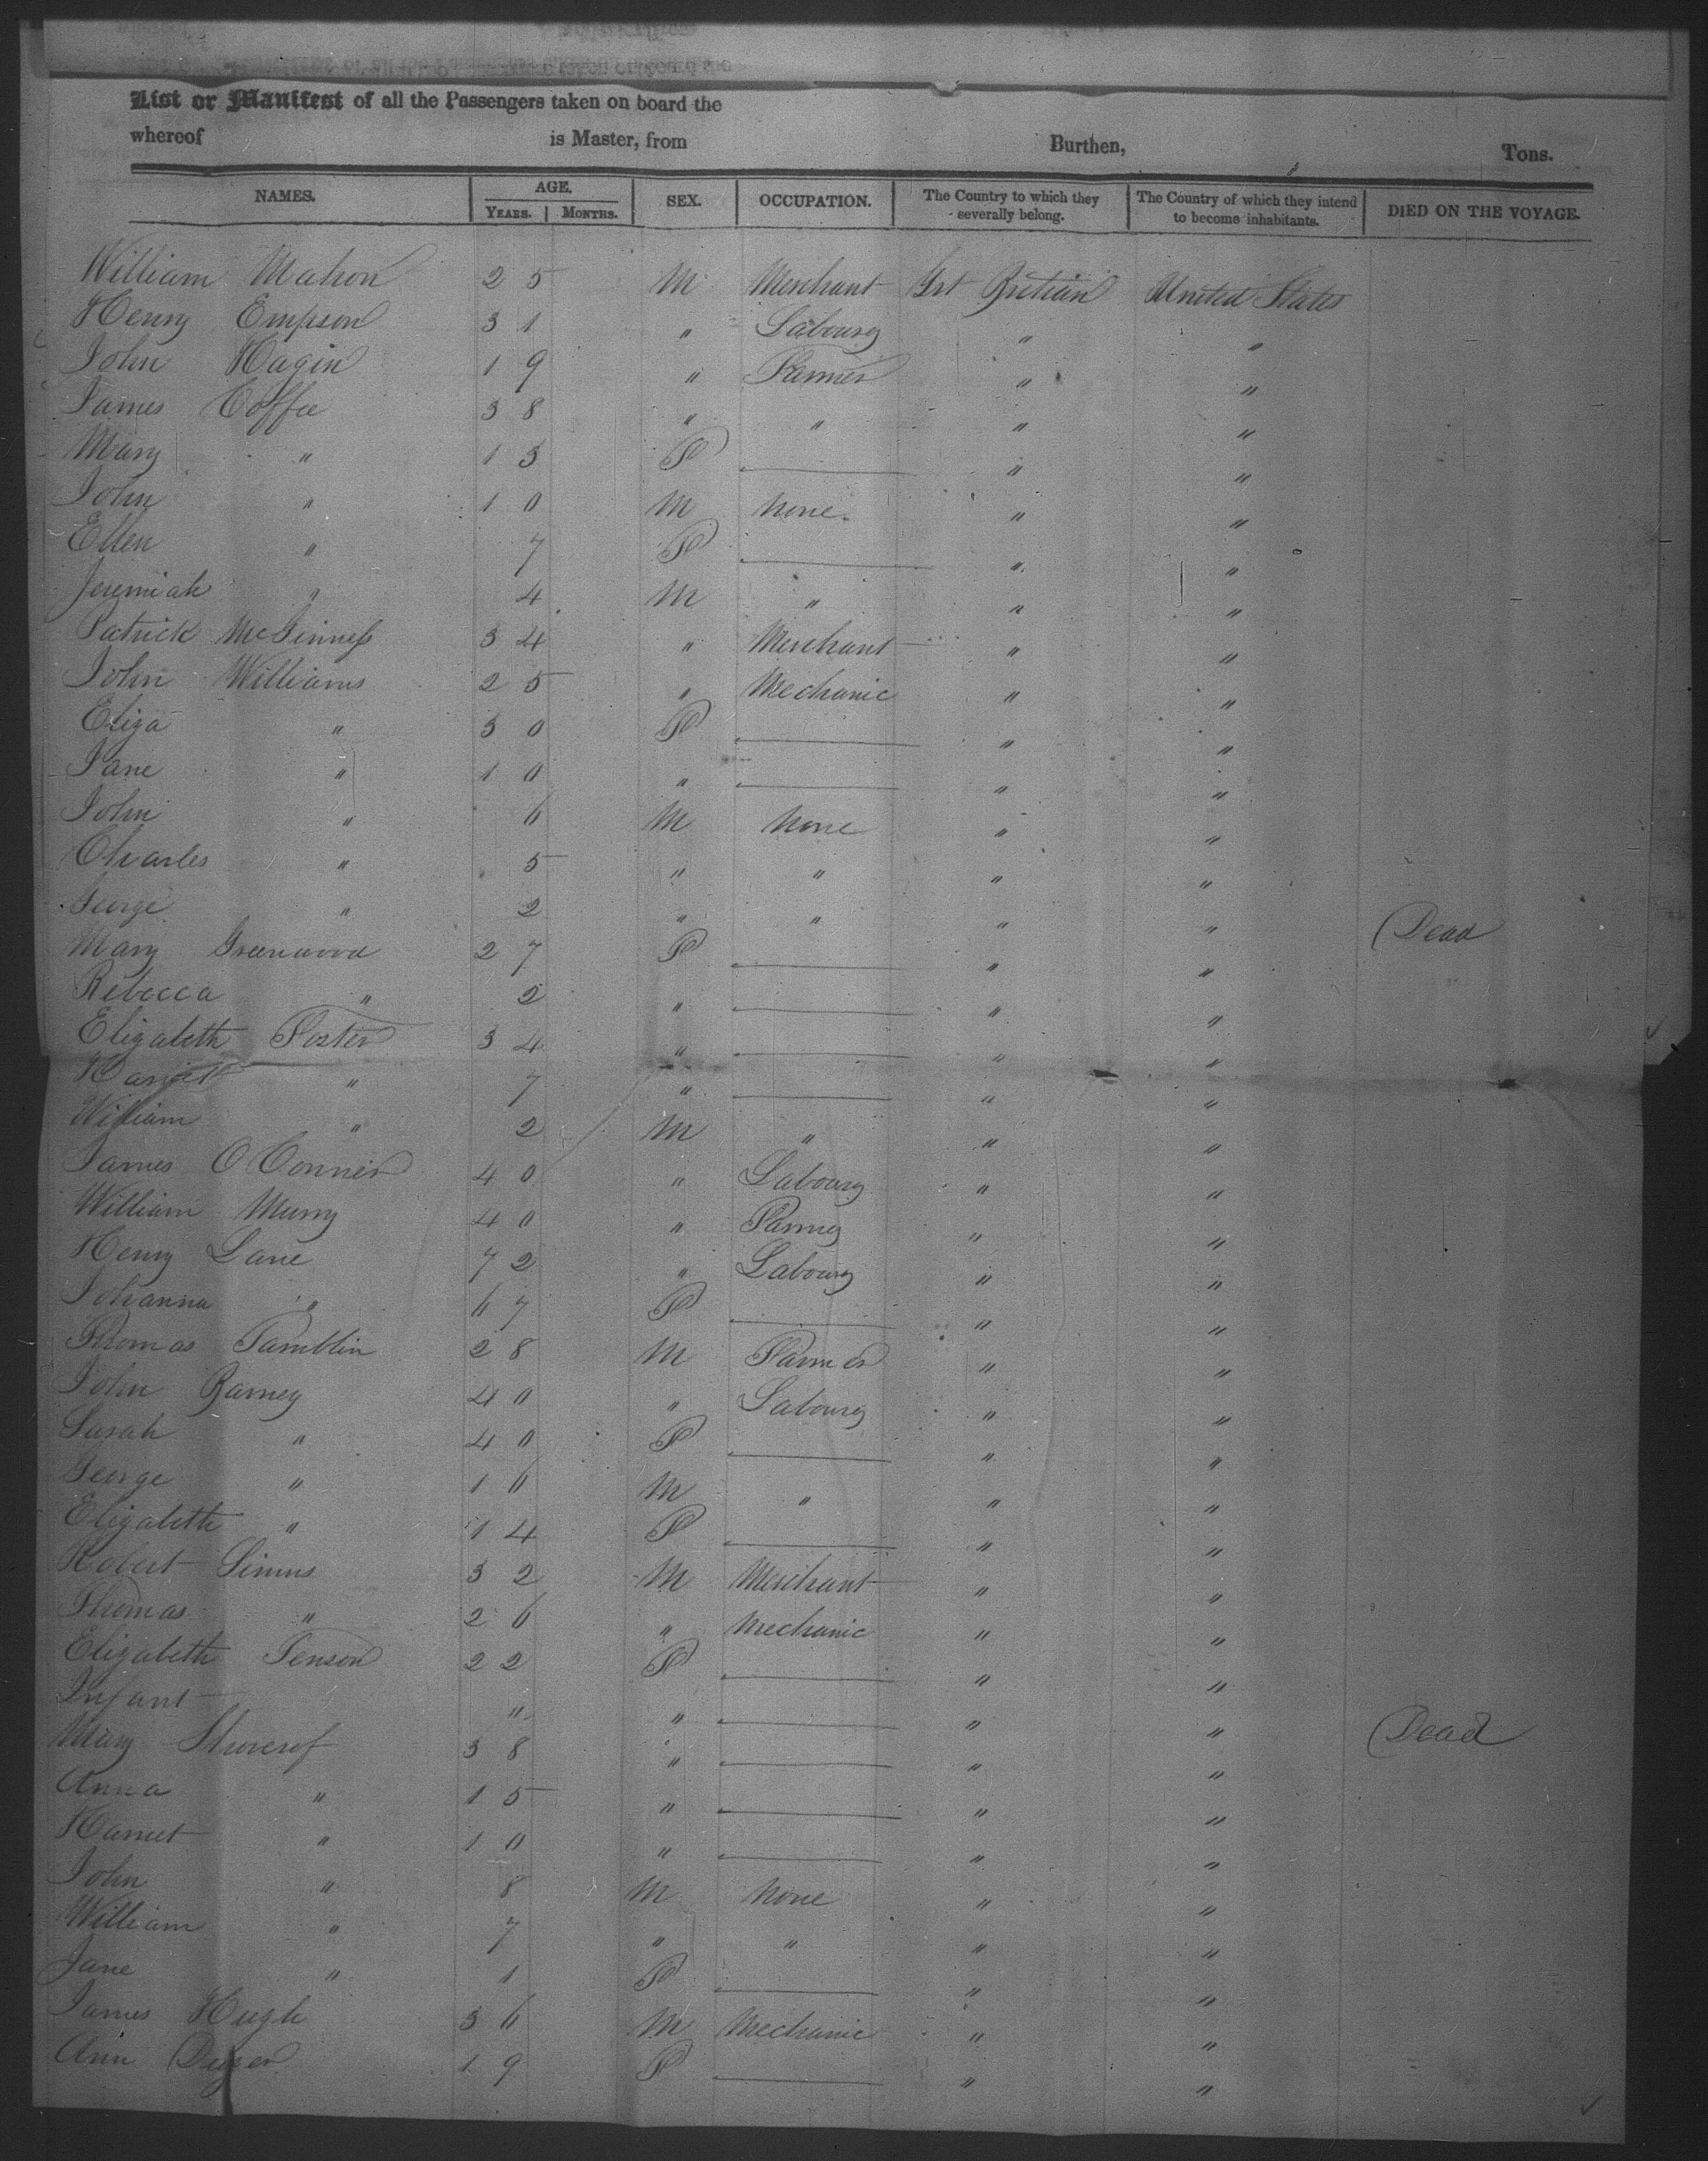 List or Manifest of all the Passengers taken on board the
whereof is Master, from Burthen, Tons.
NAMES. AGE. SEX. OCCUPATION. The Country to which they severally belong. The Country of which they intend to become inhabitants. DIED ON THE VOYAGE.
YEARS. MONTHS.
William Mahon 25 M Merchant Grt Britian United States
Henry Empson 31 " Labourer " "
John Hagin 19 " Farmer " "
James Coffee 38 " " " "
Mary " 13 F " "
John " 10 M None. " "
Ellen " 7 F " "
Jeremiah " 4 M " " "
Patrick McGinness 34 " Merchant " "
John Williams 25 " Mechanic " "
Eliza " 30 F " "
Jane " 10 " " "
John " 6 M None " "
Charles " 5 " " " "
George " 2 " " " " Dead
Mary Greenwood 27 F " "
Rebecca " 2 " " "
Elizabeth Foster 34 " " "
Harriet " 7 " " "
William " 2 M " " "
James O Conner 40 " Labourer " "
William Murry 40 " Farmer " "
Henry Lane 72 " Labourer " "
Johanna " 67 F " "
Thomas Tamblin 28 M Farmer " "
John Barney 40 " Labourer " "
Sarah " 40 F " "
George " 16 M " " "
Elizabeth " 14 F " "
Robert Simms 32 M Merchant " "
Thomas " 26 " Mechanic " "
Elizabeth Jenson 22 F " "
Infant " " " " Dead
Mary 38 " " "
Anna " 15 " " "
Harriet " 10 " " "
John " 8 M None " "
William " 7 " " " "
Jane " 1 F " "
James Hugh 36 M Mechanic " "
Ann 19 F " "